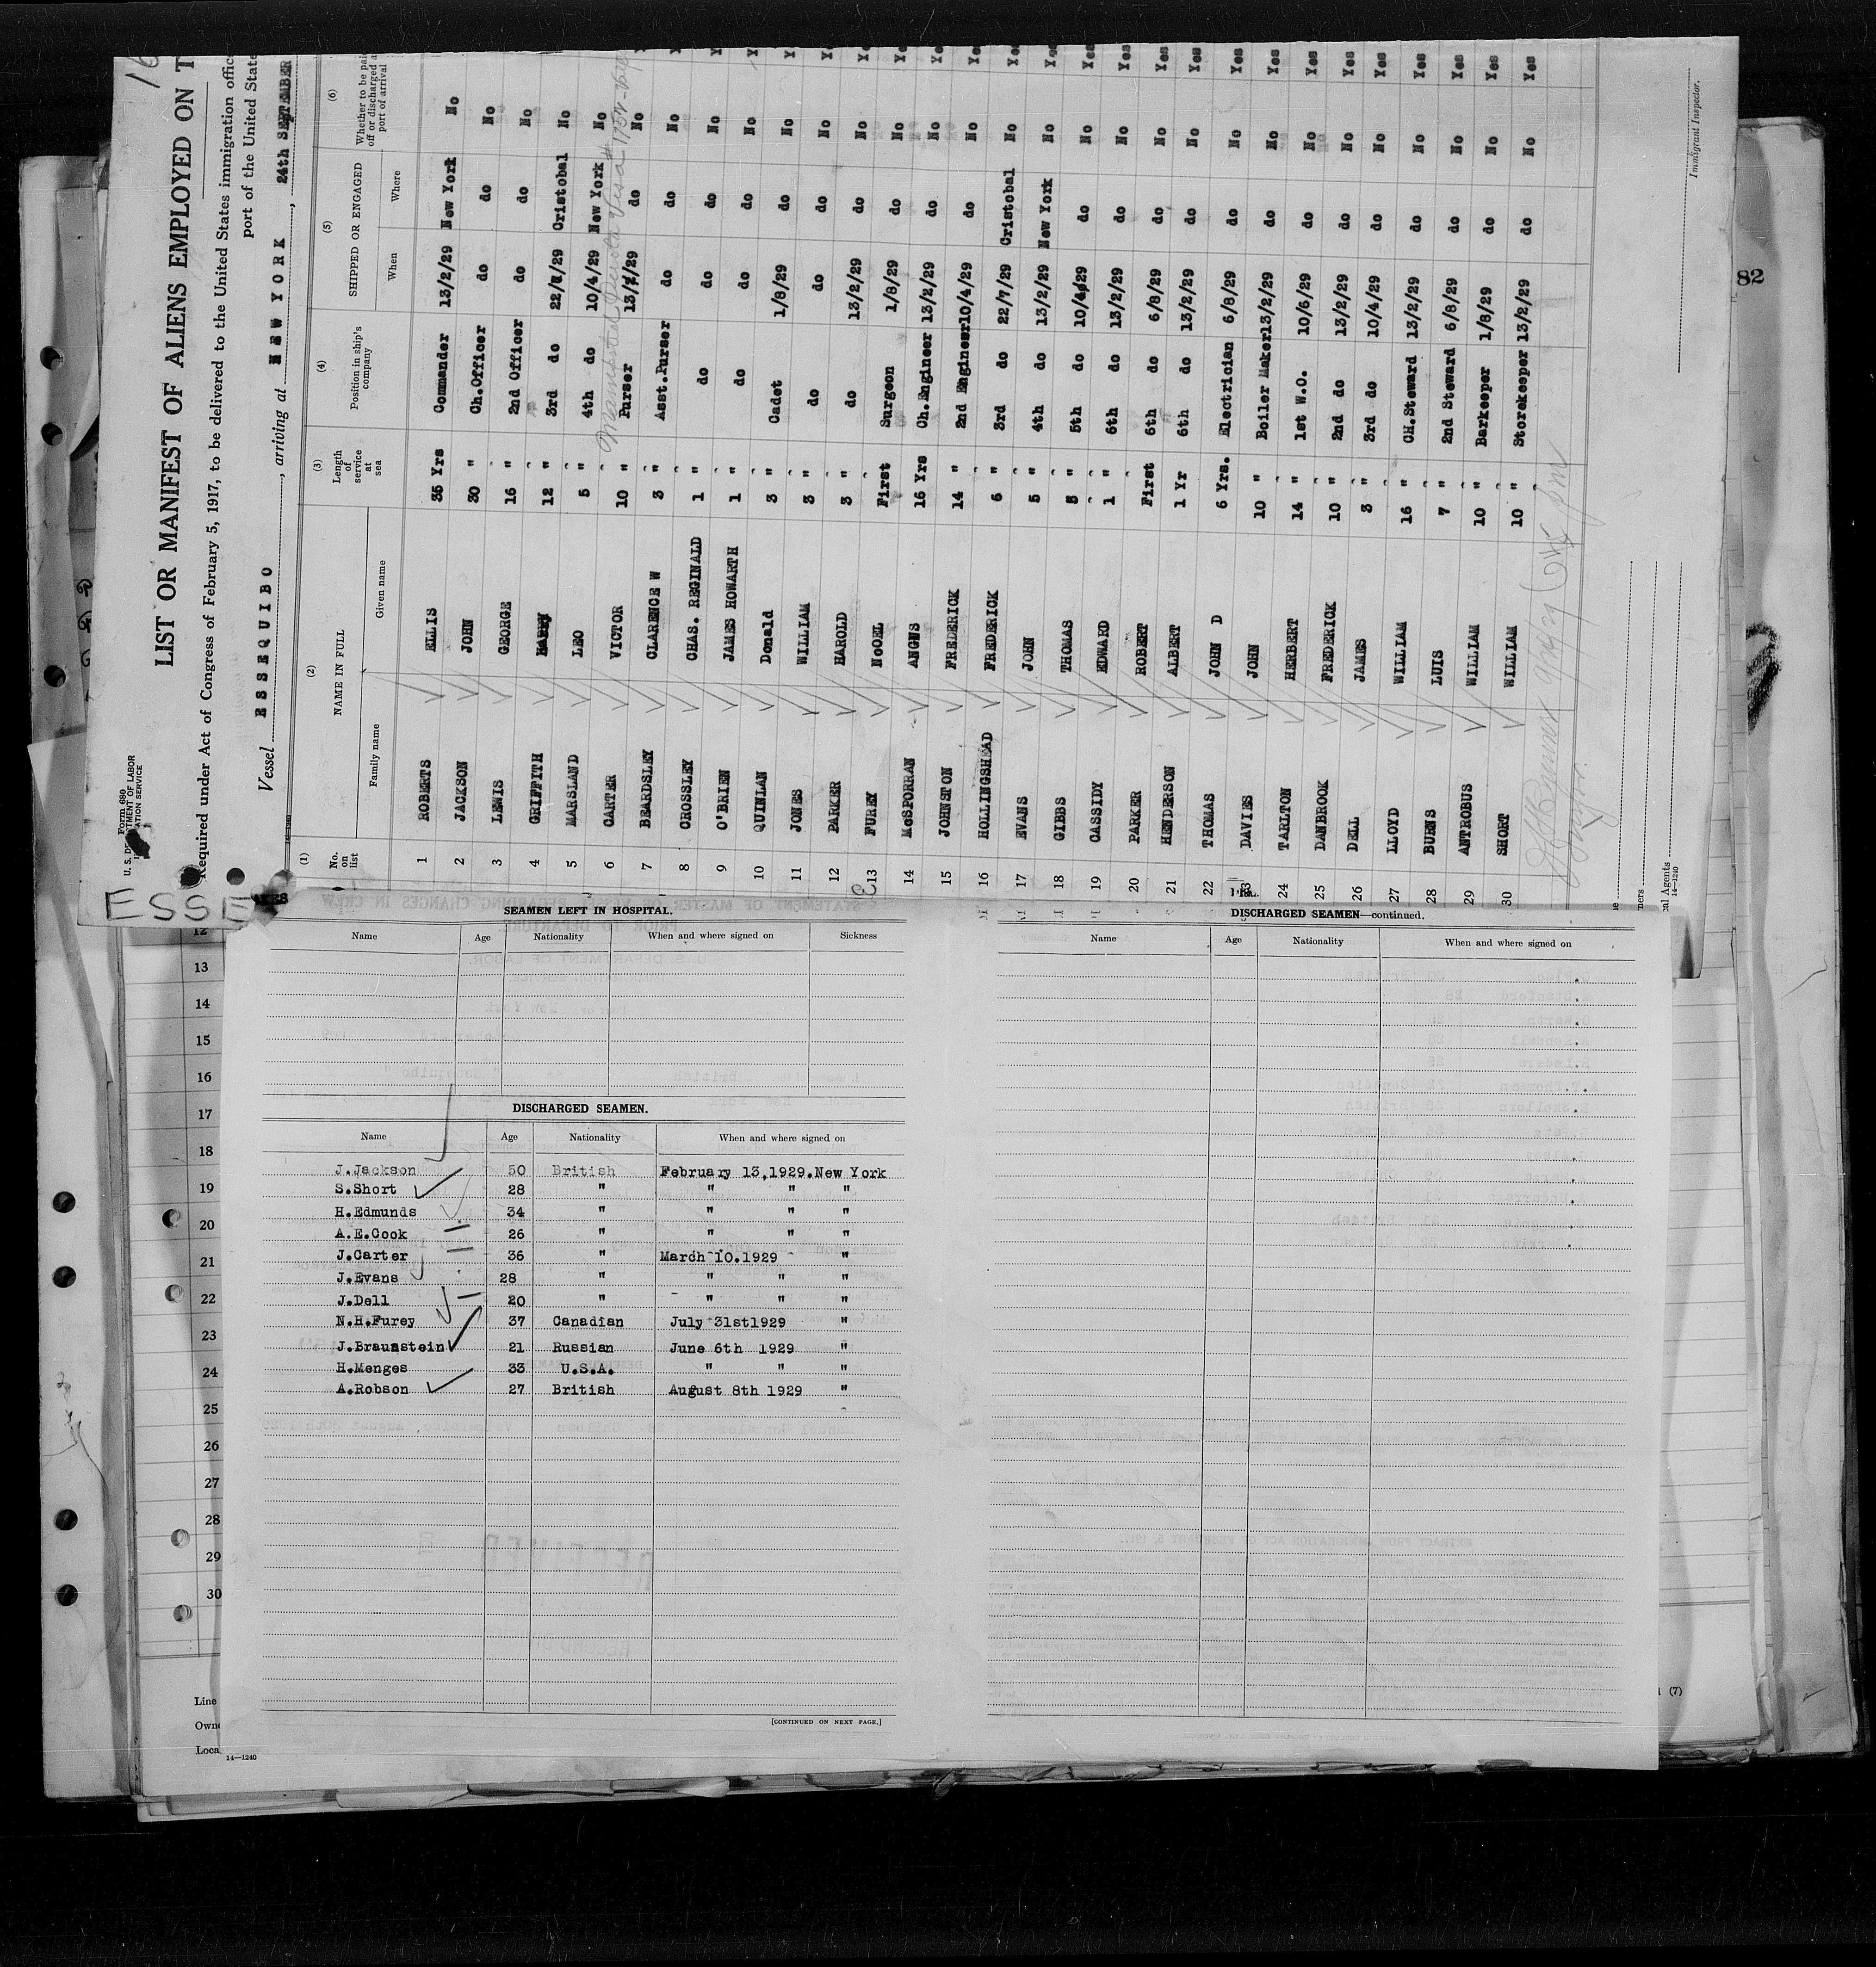 LIST OR MANIFEST OF ALIENS EMPLOYED ON T
Required under Act of Congress of February 5, 1917, to be delivered to the United States immigration office
port of the United State
Form 680
U. S. DEPARTMENT OF LABOR
IMMIGRATION SERVICE
Vessel ESSEQUIBO, arriving at NEW YORK, 24th SEPTEMBER
(1) (2) (3) (4) (5) (6)
No. on list NAME IN FULL Length of service at sea Position in ship's company SHIPPED OR ENGAGED Whether to be pai off or discharged a port of arrival
Family name Given name When Where
1 ROBERTS ELLIS 35 Yrs Commander 13/2/29 New York No
2 JACKSON JOHN 30 " Ch.Officer do do No
3 LEWIS GEORGE 16 " 2nd Officer do do No
4 GRIFFITH HARRY 12 " 3rd do 22/7/29 Cristobal No
5 MARSLAND LEO 5 " 4th do 10/4/29 New York No
6 CARTER VICTOR 10 " Purser 13/2/29 do No
7 BEARDSLEY CLARENCE W 3 " Asst.Purser do do No
8 CROSSLEY CHAS. REGINALD 1 " do do do No
9 O'BRIEN JAMES HOWARTH 1 " do do do No
10 QUINLAN Donald 3 " Cadet 1/8/29 do No
11 JONES WILLIAM 3 " do do do No
12 PARKER HAROLD 3 " do 13/2/29 do No
13 FUREY NoOEL First Surgeon 1/8/29 do No
14 McSPORRAN ANGNS 15 Yrs Ch.Engineer 13/2/29 do No
15 JOHNSTON FREDERICK 14 " 2nd Engineer 10/4/29 do No
16 HOLLINGSHEAD FREDERICK 6 " 3rd do 22/7/29 Cristobal No Yes
17 EVANS JOHN 5 " 4th do 13/2/29 New York No Yes
18 GIBBS THOMAS 5 " 5th do 10/4/29 do No Yes
19 CASSIDY EDWARD 1 " 6th do 13/2/29 do No Yes
20 PARKER ROBERT First 6th do 6/8/29 do No Yes
21 HENDERSON ALBERT 1 Yr 6th do 13/2/29 do No Yes
22 THOMAS JOHN D 6 Yrs. Electrician 6/8/29 do No Yes
23 DAVIES JOHN 10 " Boiler Maker 13/2/29 do No Yes
24 TARLTON HERBERT 14 " 1st W.O. 10/6/29 do No Yes
25 DANBROOK FREDERICK 10 " 2nd do 13/2/29 do No Yes
26 DELL JAMES 3 " 3rd do 10/4/29 do No Yes
27 LLOYD WILLIAM 16 " CH.Steward 13/2/29 do No Yes
28 BURNS LUIS 7 " 2nd Steward 6/8/29 do No Yes
29 ANTROBUS WILLIAM 10 " Barkeeper 1/8/29 do No Yes
30 SHORT WILLIAM 10 " Storekeeper 13/2/29 do No Yes
Immigrant Inspector.
al Agents
14—1240
82
ESSE
SEAMEN LEFT IN HOSPITAL.
Name Age Nationality When and where signed on Sickness
DISCHARGED SEAMEN.
Name Age Nationality When and where signed on
J.Jackson 50 British February 13,1929.New York
S.Short 28 " " " "
H.Edmunds 34 " " " "
A.E.Cook 26 " " " "
J.Carter 36 " March 10.1929 "
J.Evans 28 " " " "
J.Dell 20 " " " "
N.H.Furey 37 Canadian July 31st1929 "
J.Braunstein 21 Russian June 6th 1929 "
H.Menges 33 U.S.A. " " "
A.Robson 27 British August 8th 1929 "
[CONTINUED ON NEXT PAGE.]
14—1240
DISCHARGED SEAMEN—continued.
Name Age Nationality When and where signed on
12
13
14
15
16
17
18
19
20
21
22
23
24
25
26
27
28
29
30
Line
Owne
Loca
(7)